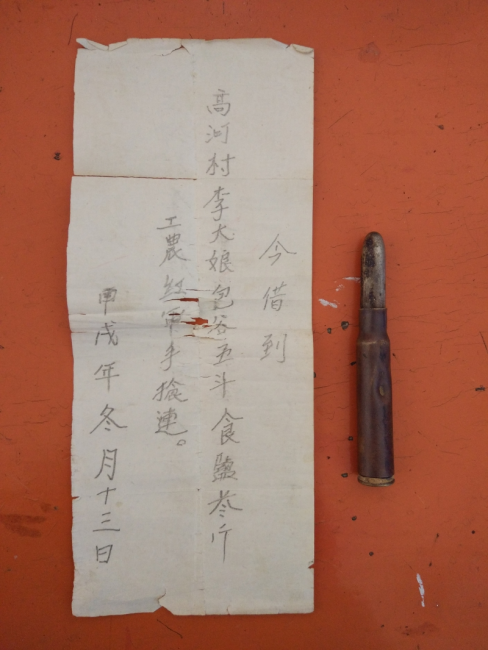 今借到
高河村李大娘包谷五斗食盐叁斤
工農紅軍手搶連。
甲戌年冬月十三日